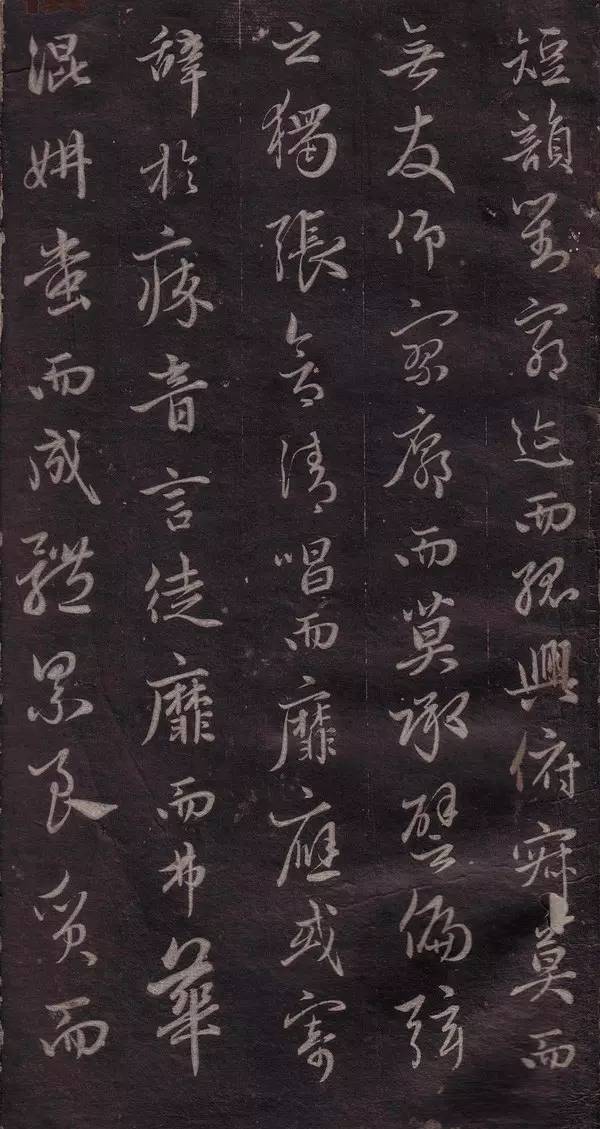 短韻對窮迹而孤興俯寂莫而
無友仰寥廓而莫承譬偏弦
之獨張含清唱而靡應或寄
辭於瘁音言徒靡而弗華
混妍蚩而成體累良質而